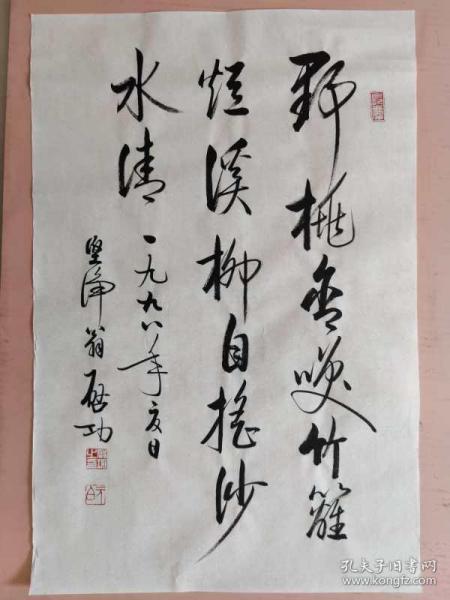 野桃含咲竹籬
短溪柳自摇沙
水清
一九九八年夏日
坚净翁启功
孔夫子旧书网
www.kongfz.com